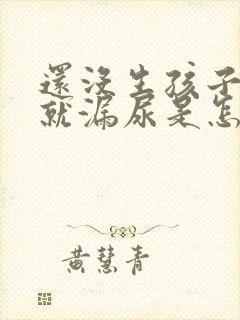 還沒生孩子
就漏尿是怎
黃慧青